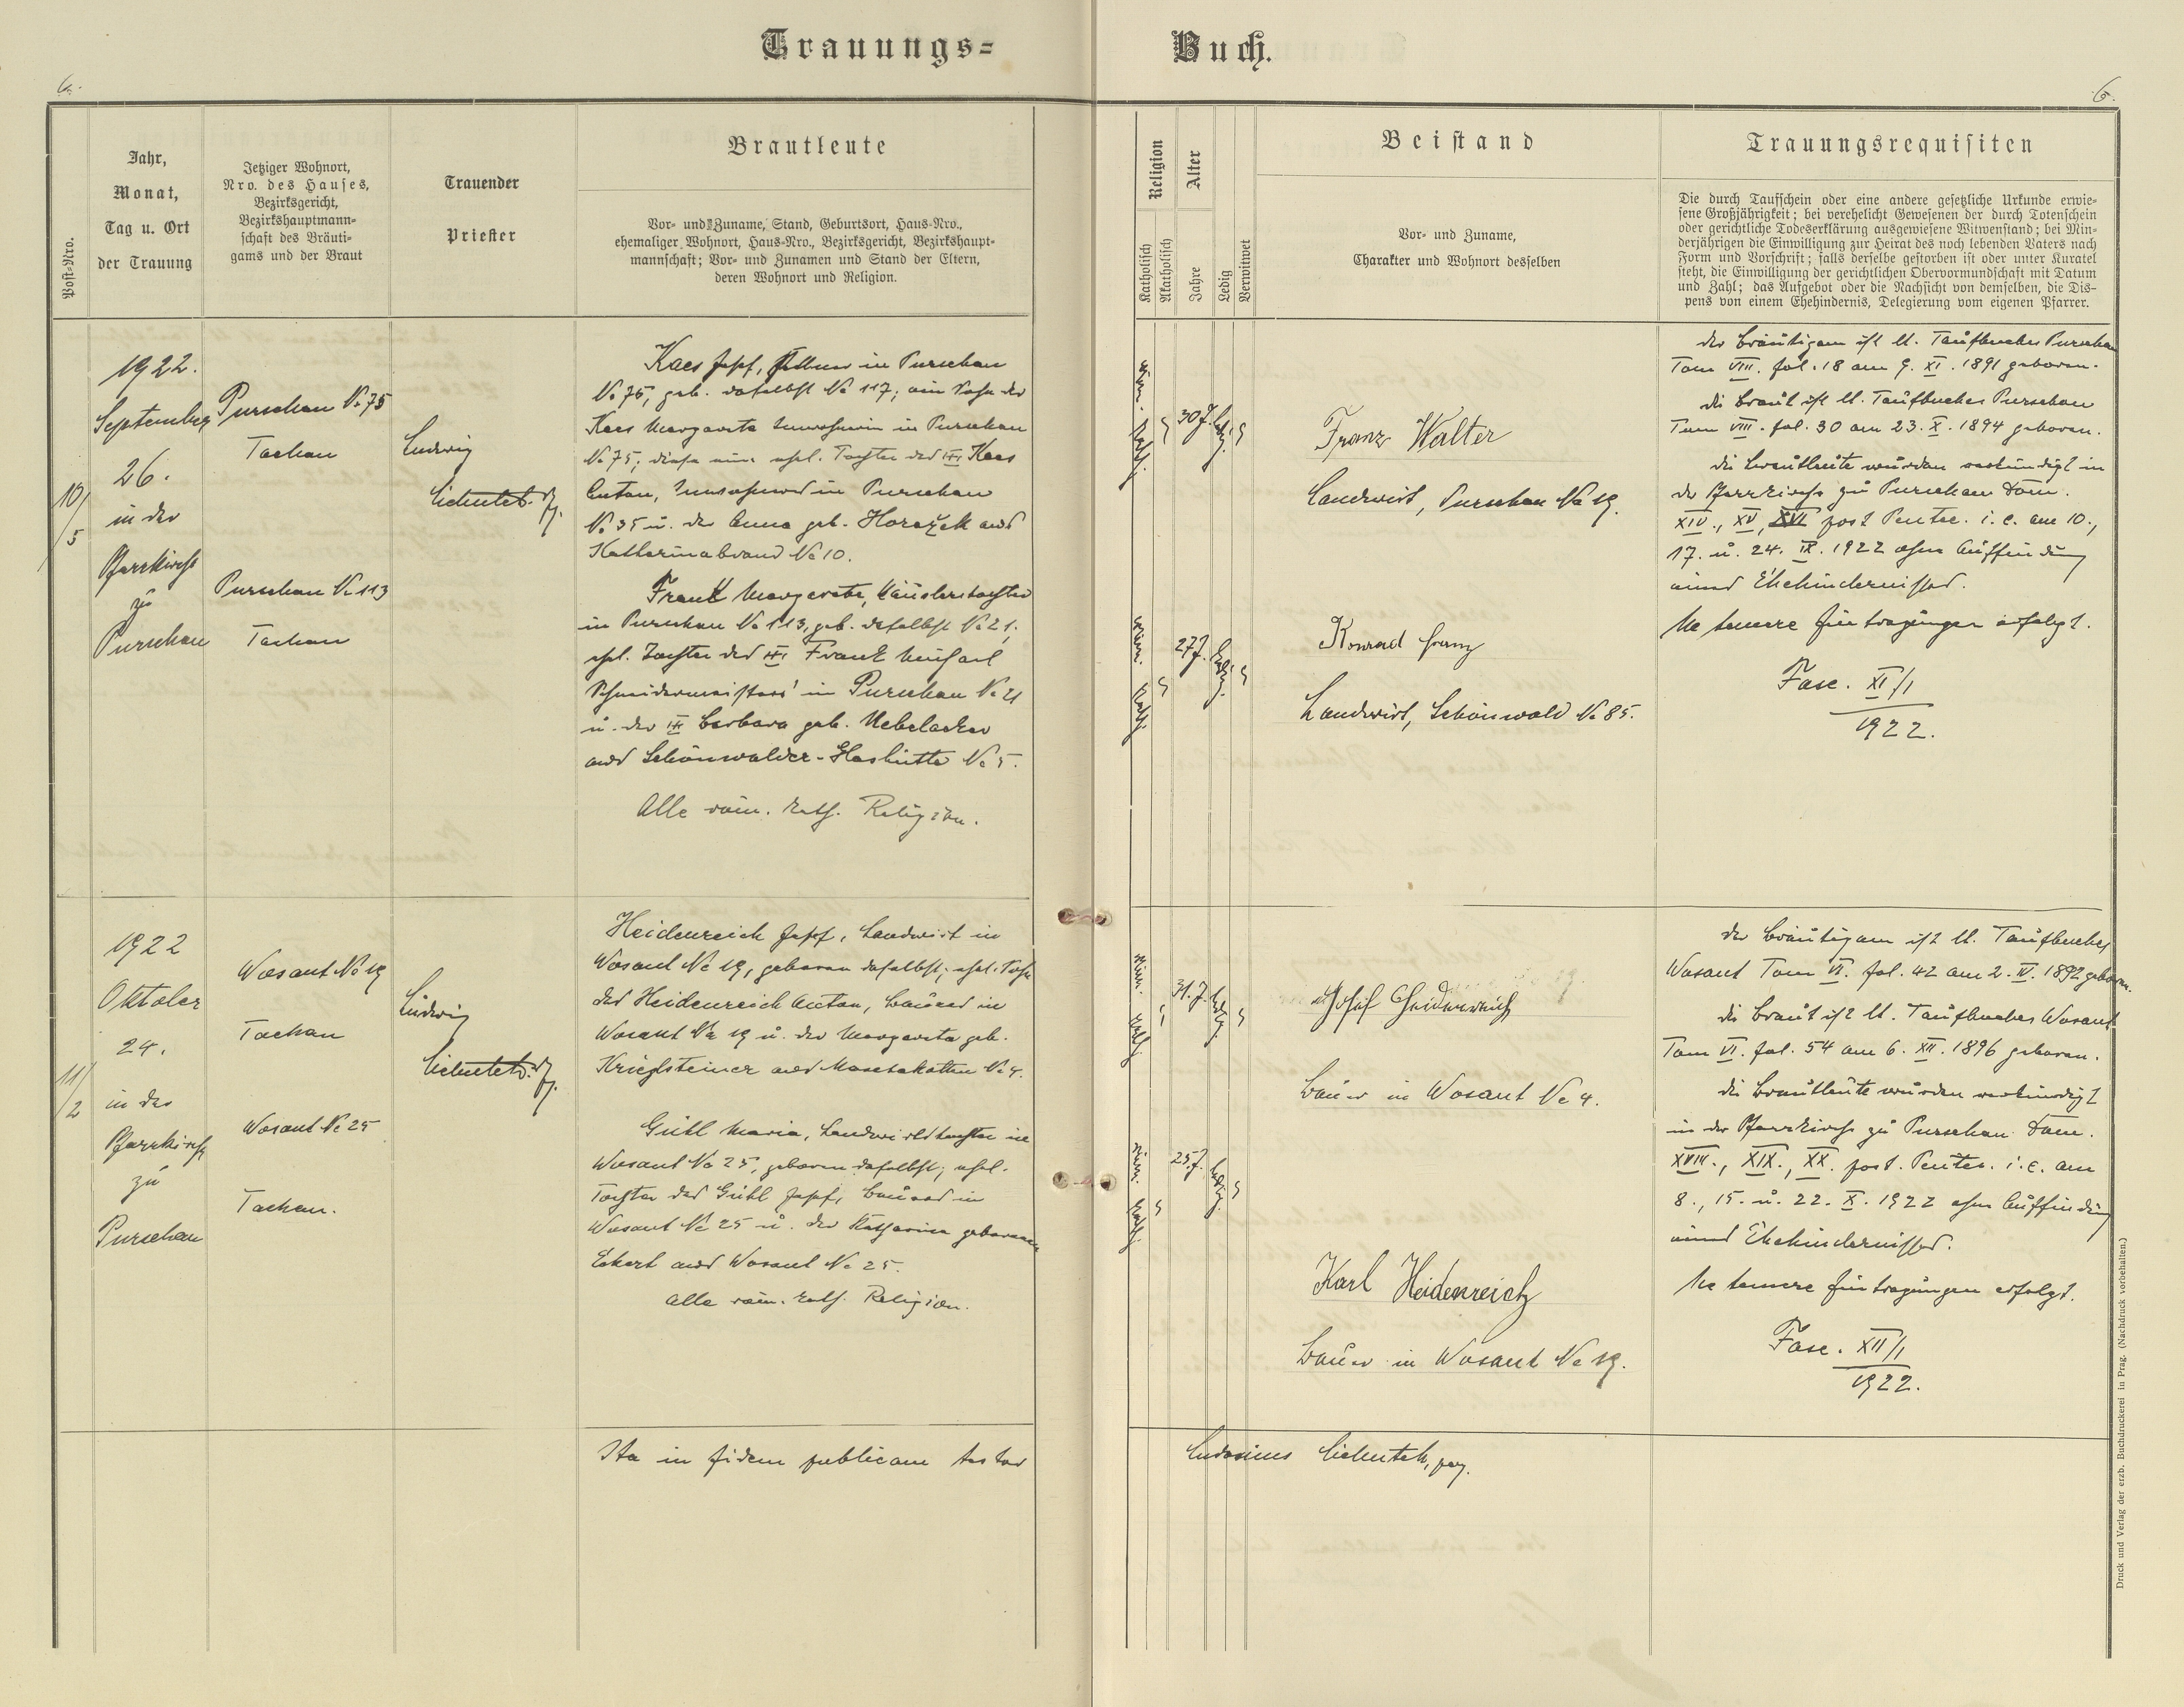 Trauungs=
Buch.
6.
6.
Post=Nro.
Jahr,
Monat,
Tag u. Ort
der Trauung
Jetziger Wohnort,
Nro. des Hauses,
Bezirksgericht,
Bezirkshauptmann=
schaft des Bräuti=
gams und der Braut
Trauender
Priester
Brautleute
Vor= und Zuname, Stand, Geburtsort, Haus=Nro.,
ehemaliger Wohnort, Haus=Nro., Bezirksgericht, Bezirkshaupt=
mannschaft; Vor= und Zunamen und Stand der Eltern,
deren Wohnort und Religion.
Religion
Katholisch
Akatholisch
Alter
Jahre
Ledig
Verwitwet
Beistand
Vor= und Zuname,
Charakter und Wohnort desselben
Trauungsrequisiten
Die durch Taufschein oder eine andere gesetzliche Urkunde erwie=
sene Großjährigkeit; bei verehelicht Gewesenen der durch Totenschein
oder gerichtliche Todeserklärung ausgewiesene Witwenstand; bei Min=
derjährigen die Einwilligung zur Heirat des noch lebenden Vaters nach
Form und Vorschrift; falls derselbe gestorben ist oder unter Kuratel
steht, die Einwilligung der gerichtlichen Obervormundschaft mit Datum
und Zahl; das Aufgebot oder die Nachsicht von demselben, die Dis=
pens von einem Ehehindernis, Delegierung vom eigenen Pfarrer.
10/5
1922.
September
26.
in der
Pfarrkirche
zu
Purschau
Purschau No 75
Tachau
Purschau No 113
Tachau
Ludwig
Kaes Josef, in Purschau
No 75, geb. daselbst No 117; ein Sohn der
Kaes Margareta Inwohnerin in Purschau
No 75; diese eine ehel. Tochter des Kaes
Anton, Inwohners in Purschau
No 35 u. der Anna geb. Horažek aus
Katharinabrand No 10.
Frank Margareta, Häuslerstochter
in Purschau No 113, geb. daselbst No 21,
ehel. Tochter des Frank Michael
Schneidermeisters in Purschau No 21
u. der Barbara geb. Uebelacker
aus Schönwalder-Glashütte No 5.
Alle röm. kath. Religion.
röm. kath.
30 J.
ledig
röm. kath.
27 J.
ledig
Franz Walter
Landwirt, Purschau No 19.
Konrad Franz
Landwirt, Schönwald No 85.
der Bräutigam ist lt. Taufbuches Purschau
Tom VIII. fol. 18 am 9. XI. 1891 geboren.
die Braut ist lt. Taufbuches Purschau
Tom VIII. fol. 30 am 23. X. 1894 geboren.
die Brautleute wurden verkündigt in
der Pfarrkirche zu Purschau Dom.
XIV., XV, XVI post Pentec. i. e. am 10.,
17. u. 24. IX. 1922 ohne Auffindung
eines Ehehindernisses.
Ne temere Eintragungen erfolgt.
Fasc. XI/1
1922.
11/2
1922
Oktober
24.
in der
Pfarrkirche
zu
Purschau
Wosant No 19
Tachau
Wosant No 25
Tachau.
Ludwig
Heidenreich Josef, Landwirt in
Wosant No 19, geboren daselbst; ehel. Sohn
des Heidenreich Anton, Bauers in
Wosant No 19 u. der Margareta geb.
Krieglsteiner aus Maschakotten No 4.
Gütl Maria, Landwirtstochter in
Wosant No 25, geboren daselbst; ehel.
Tochter des Gütl Josef, Bauers in
Wosant No 25 u. der Katharina geborenen
Eckert aus Wosant No 25.
Alle röm. kath. Religion.
röm. kath.
31. J.
ledig
röm. kath.
25 J.
ledig
Josef Heidenreich
Bauer in Wosant No 4.
Karl Heidenreich
Bauer in Wosant No 19.
der Bräutigam ist lt. Taufbuches
Wosant Tom VI. fol. 42 am 2. IV. 1892 geboren.
die Braut ist lt. Taufbuches Wosant
Tom VI. fol. 54 am 6. XII. 1896 geboren.
die Brautleute wurden verkündigt
in der Pfarrkirche zu Purschau Dom.
XVIII., XIX., XX. post. Pentec. i. e. am
8., 15. u. 22. X. 1922 ohne Auffindung
eines Ehehindernisses.
Ne temere Eintragungen erfolgt.
Fasc. XII/1
1922.
Ita in fidem publicam testor
Druck und Verlag der erzb. Buchdruckerei in Prag. (Nachdruck vorbehalten.)